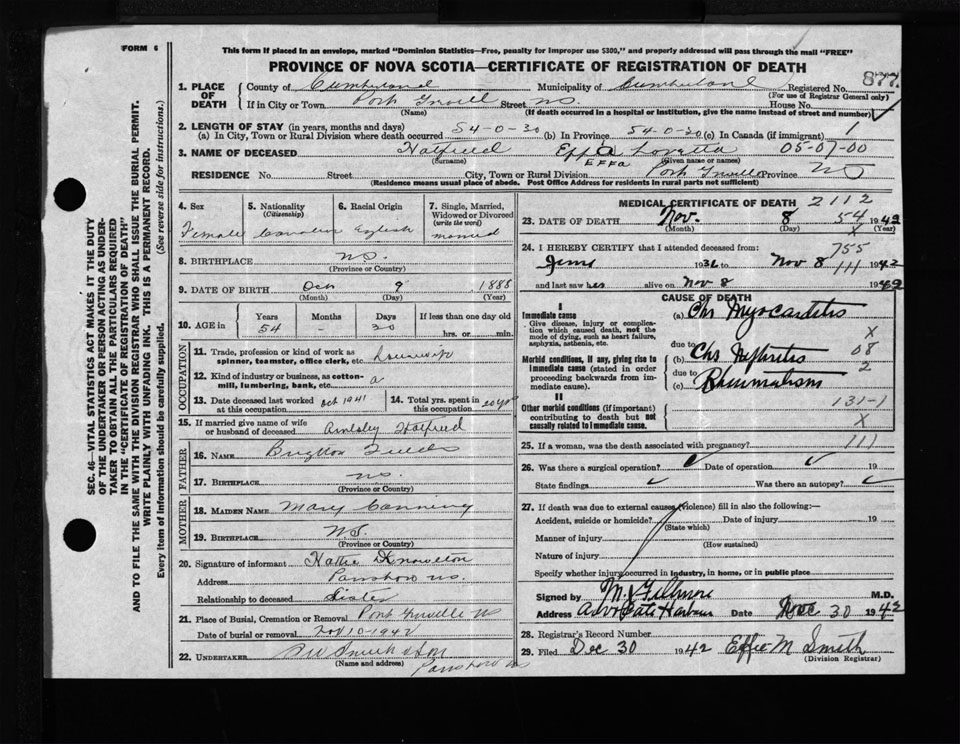 FORM 6
This form if placed in an envelope, marked "Dominion Statistics—Free, penalty for improper use $300," and properly addressed will pass through the mail "FREE"
PROVINCE OF NOVA SCOTIA—CERTIFICATE OF REGISTRATION OF DEATH
877.
1. PLACE OF DEATH
County of Cumberland Municipality of Cumberland Registered No.
(For use of Registrar General only)
If in City or Town Port Greville Street N.S. House No.
(Name) (If death occurred in a hospital or institution, give the name instead of street and number)
2. LENGTH OF STAY (in years, months and days)
(a) In City, Town or Rural Division where death occurred 54-0-30 (b) In Province 54-0-30 (c) In Canada (if immigrant) 1
3. NAME OF DECEASED Hatfield Effa Loretta 05-07-00
(Surname) EFFA (Given name or names)
RESIDENCE No. Street City, Town or Rural Division Port Greville Province NS
(Residence means usual place of abode. Post Office Address for residents in rural parts not sufficient)
4. Sex Female
5. Nationality (Citizenship) Canadian
6. Racial Origin English
7. Single, Married, Widowed or Divorced (write the word) married
8. BIRTHPLACE N.S.
(Province or Country)
9. DATE OF BIRTH 9 1888
(Month) (Day) (Year)
10. AGE in Years 54 Months - Days 30 If less than one day old hrs. or min.
OCCUPATION
11. Trade, profession or kind of work as spinner, teamster, office clerk, etc. Housewife
12. Kind of industry or business, as cotton-mill, lumbering, bank, etc. a
13. Date deceased last worked at this occupation Oct 1941
14. Total yrs. spent in this occupation 20 yrs
15. If married give name of wife or husband of deceased Hatfield
FATHER
16. NAME
17. BIRTHPLACE N.S.
(Province or Country)
MOTHER
18. MAIDEN NAME Mary Canning
19. BIRTHPLACE N.S.
(Province or Country)
20. Signature of informant Knowlton
Address Parrsboro NS.
Relationship to deceased Sister
21. Place of Burial, Cremation or Removal Port Greville NS
Date of burial or removal Nov 10-1942
22. UNDERTAKER Smith & Son
(Name and address) Parrsboro NS
MEDICAL CERTIFICATE OF DEATH 2112
23. DATE OF DEATH Nov. 8 54 1942
(Month) (Day) X (Year)
24. I HEREBY CERTIFY that I attended deceased from: 755
June 1936 to Nov 8 111 1942
and last saw her alive on Nov 8 1942
CAUSE OF DEATH
I
Immediate cause
Give disease, injury or complication which caused death, not the mode of dying, such as heart failure, asphyxia, asthenia, etc.
(a) Chr Myocarditis
X
due to 08
Morbid conditions, if any, giving rise to immediate cause (stated in order proceeding backwards from immediate cause).
(b) Chr Nephritis
2
due to
(c) Rheumatism
II
Other morbid conditions (if important) contributing to death but not causally related to immediate cause.
131-1
X
25. If a woman, was the death associated with pregnancy? 111
26. Was there a surgical operation? ✓ Date of operation ✓ 19
State findings ✓ Was there an autopsy? ✓
27. If death was due to external causes (violence) fill in also the following:—
Accident, suicide or homicide? Date of injury 19
(State which)
Manner of injury
(How sustained)
Nature of injury
Specify whether injury occurred in industry, in home, or in public place
Signed by Fillmore M.D.
Address Advocate Harbour Date Dec 30 1942
28. Registrar's Record Number
29. Filed Dec 30 1942 Effie M Smith
(Division Registrar)
SEC. 46—VITAL STATISTICS ACT MAKES IT THE DUTY
OF THE UNDERTAKER OR PERSON ACTING AS UNDERTAKER TO OBTAIN ALL THE PARTICULARS REQUIRED
IN THE "CERTIFICATE OF REGISTRATION OF DEATH"
AND TO FILE THE SAME WITH THE DIVISION REGISTRAR WHO SHALL ISSUE THE BURIAL PERMIT.
WRITE PLAINLY WITH UNFADING INK. THIS IS A PERMANENT RECORD.
Every item of Information should be carefully supplied. (See reverse side for instructions.)